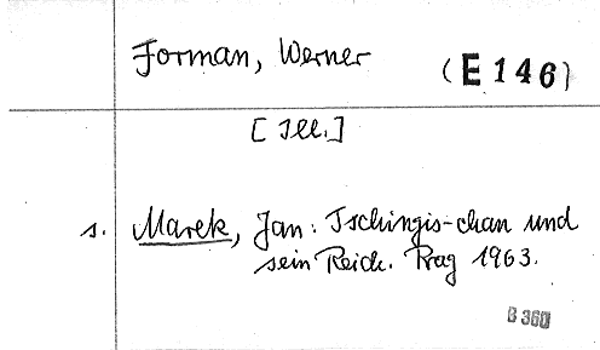 Forman, Werner (E 146)
[Ill.]
s. Marek, Jan: Tschingis-chan und
sein Reich. Prag 1963.
B 360